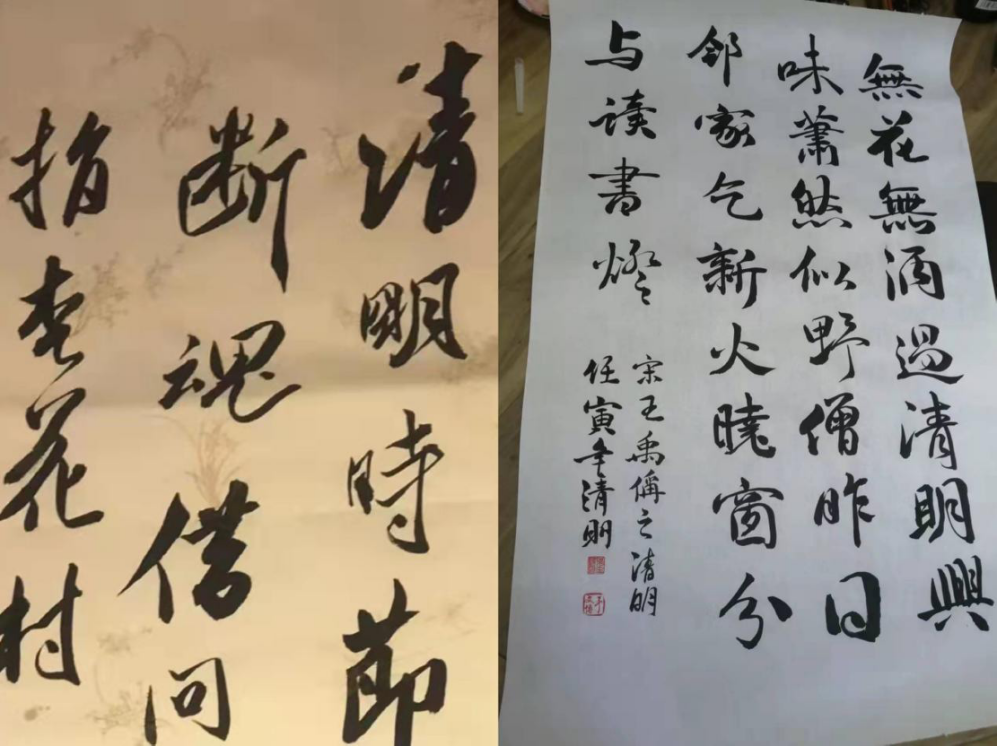 清明時節
断魂借问
指杏花村
無花無酒過清明興
味蕭然似野僧昨日
邻家乞新火曉窗分
与读書燈
宋王禹偁之清明
任寅年清明